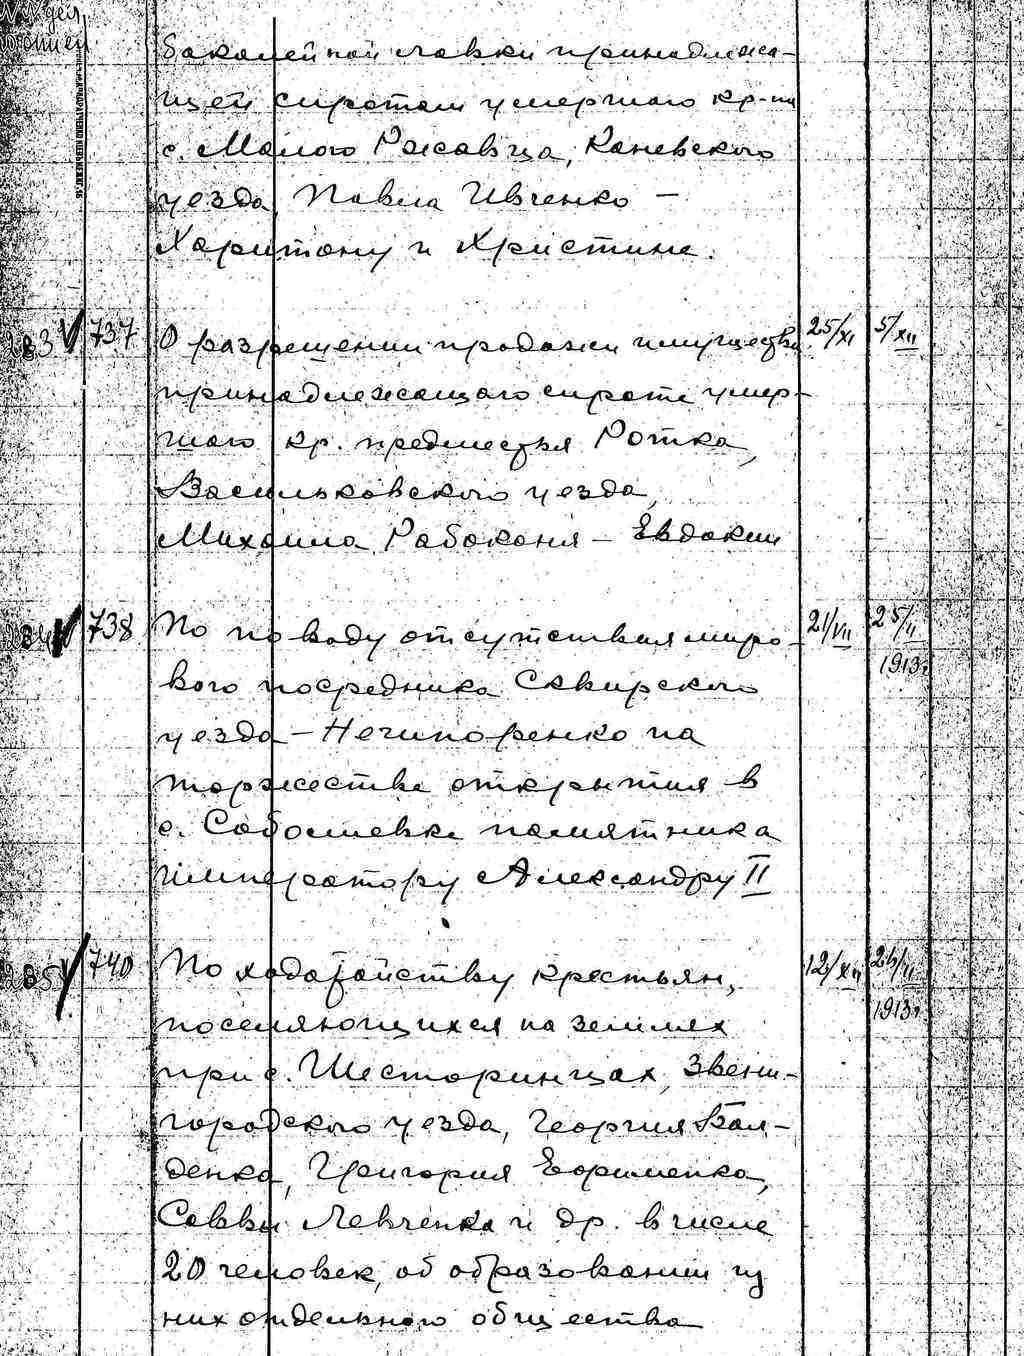 бакалейной лавки принадлежа-
щей сиротам умершаго кр-на
с. Малого Ржавца, Каневского
уезда, Павла Ивченко –
Харитону и Христине.
283 737 О разрешении продажи имущества 25/XI 5/XII
принадлежащаго сироте умер-
шаго кр. предместья Ротка,
Васильковского уезда,
Михаила Рабоконя – Евдокии
284 738 По поводу отсутствия миро- 21/VII 25/II
вого посредника Сквирского 1913г
уезда – Нечипоренко на
торжестве открытия в
с. Соболевке памятника
Императору Александру II
285 740 По ходатайству крестьян, 12/XII 26/II
поселяющихся на землях 1913г
при с. Шесторинцах, Звени-
городского уезда, Георгия Бон-
денка, Григория Ефименка,
Саввы Левченка и др. в числе
20 человек, об образовании из
них отдельного общества